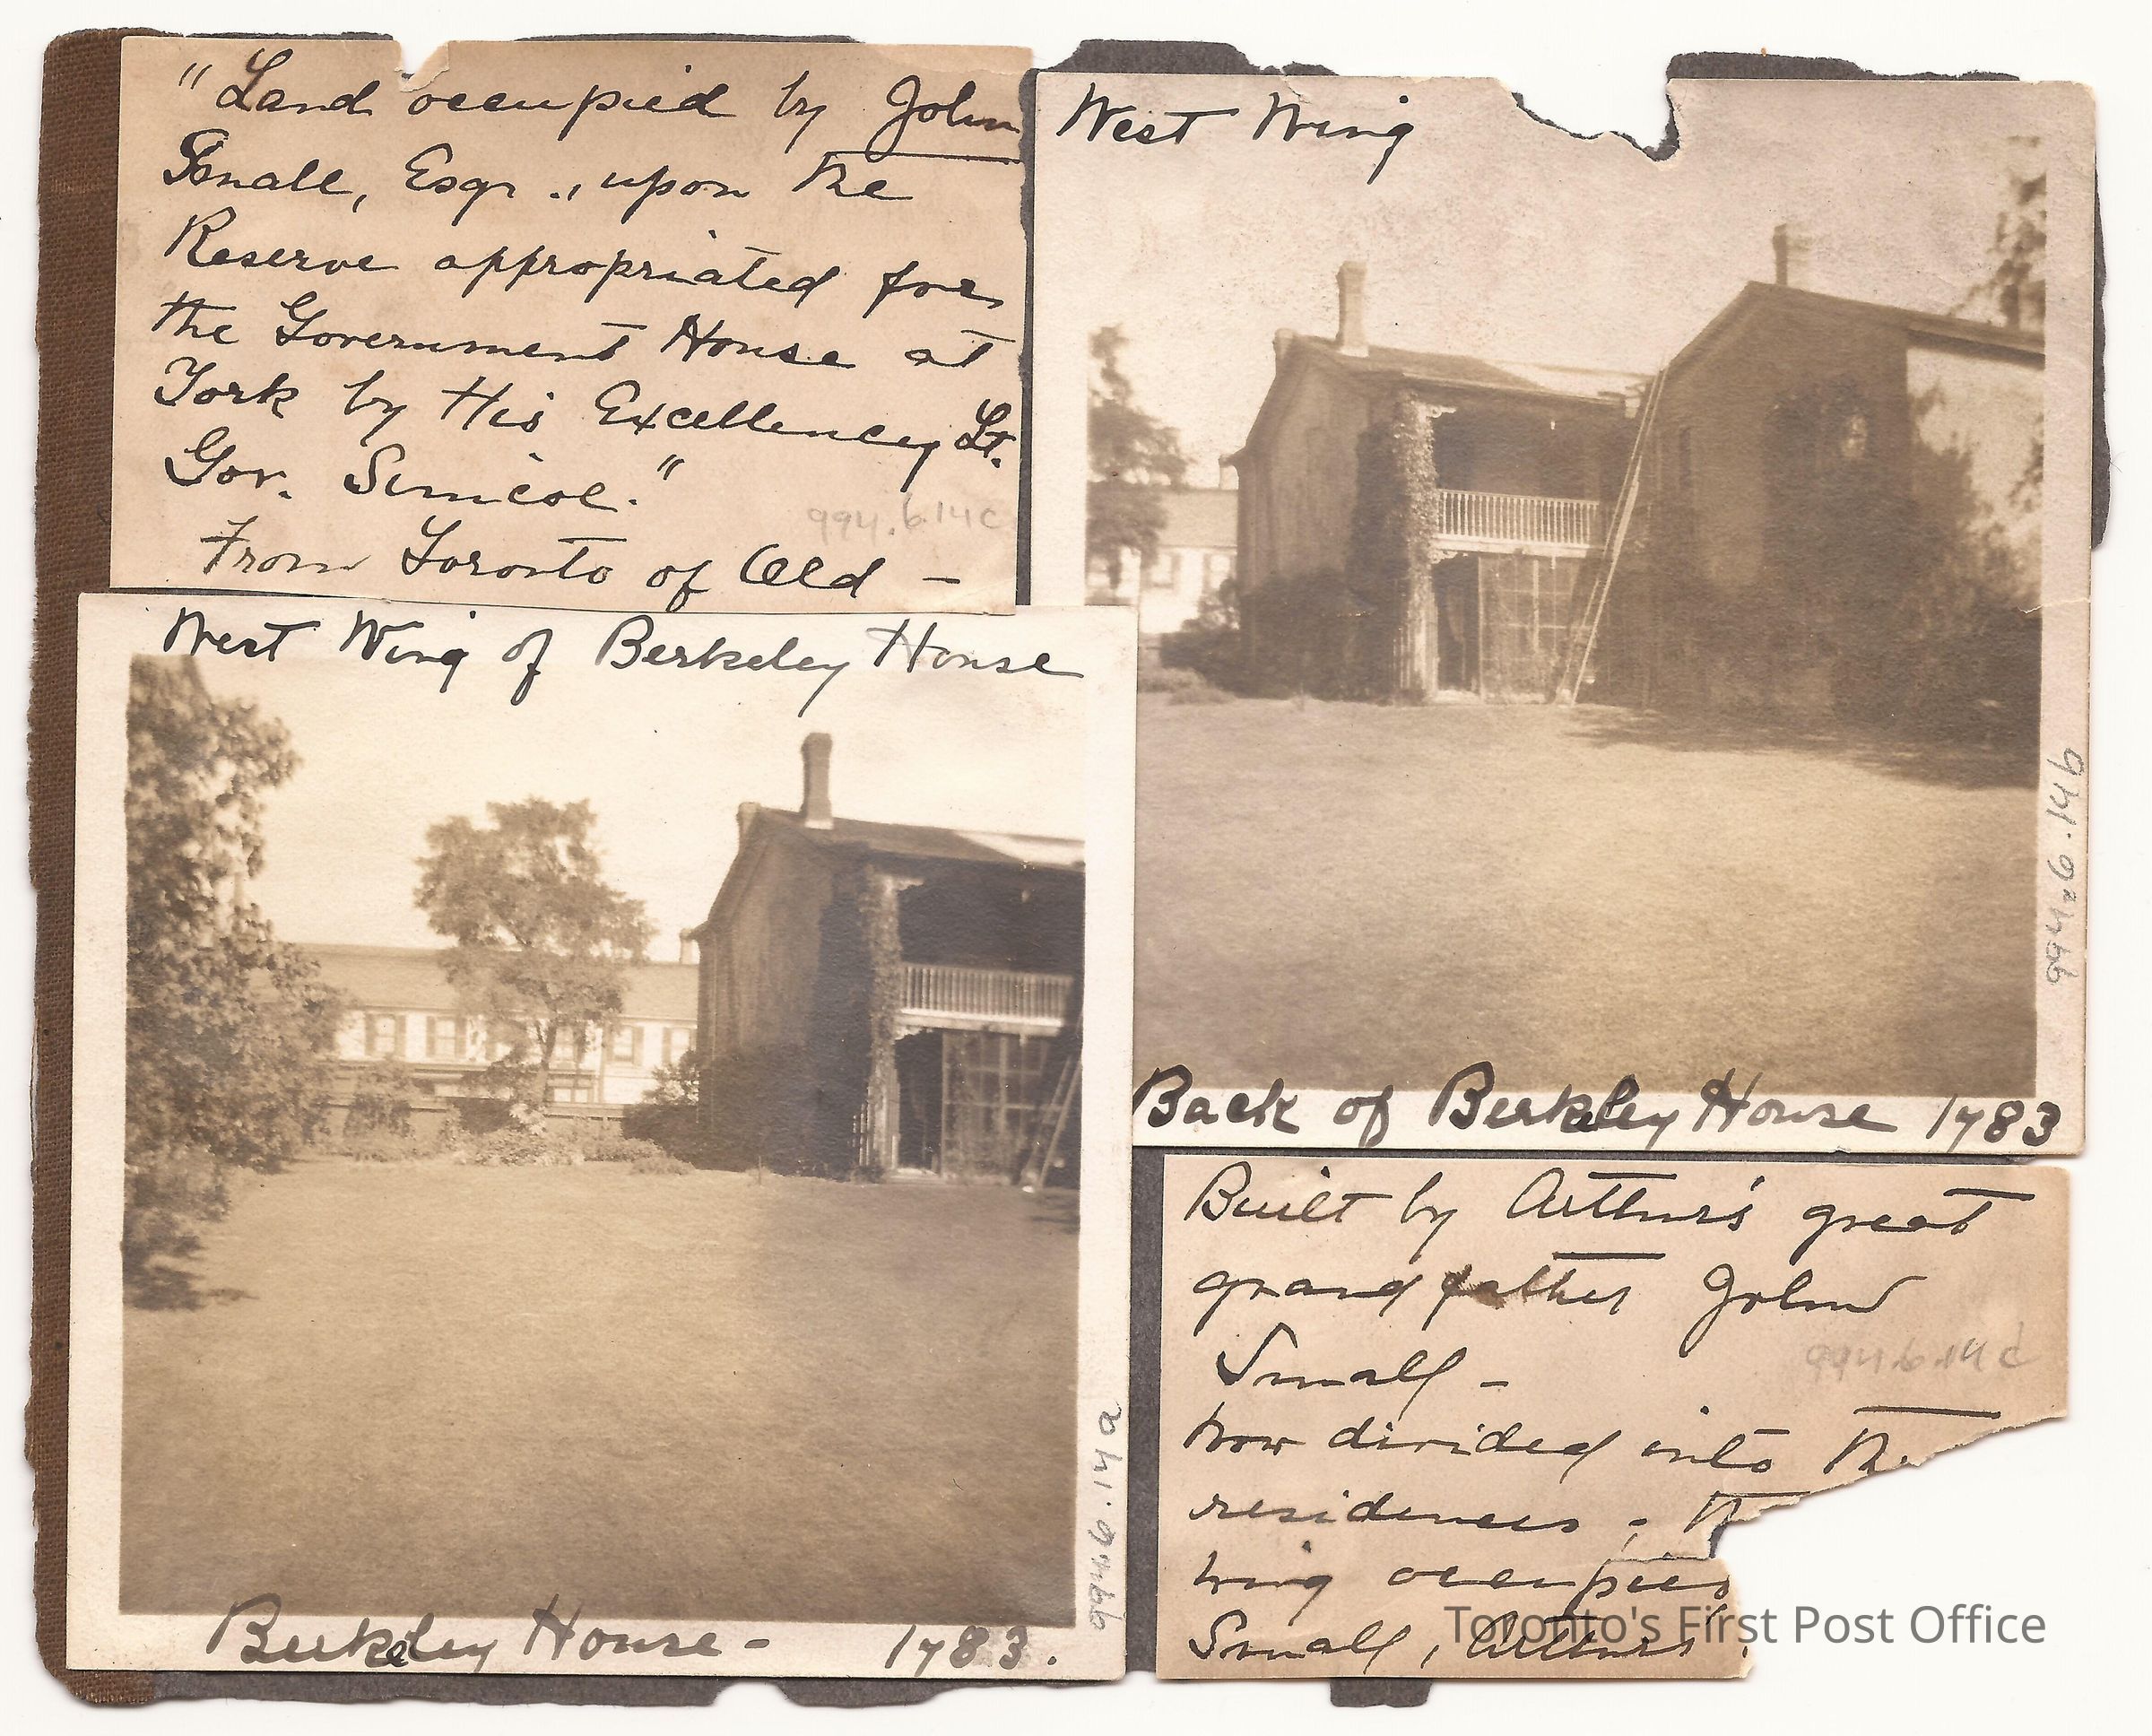 "Land occupied by John
Small, Esqr., upon the
Reserve appropriated for
the Government House at
York by His Excellency Lt.
Gov. Simcoe."
994.6.14c
From Toronto of Old –
West Wing
994.6.14b
Back of Berkeley House 1783
West Wing of Berkeley House
994.6.14a
Berkeley House – 1783.
Built by Arthur's great
grand father John
Small –
994.6.14d
now divided into
residences –
wing occupied
Small, Arthur's
Toronto's First Post Office